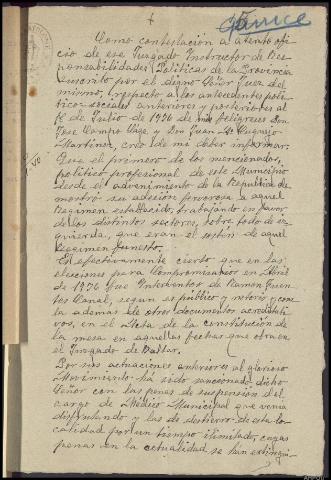 Como contestación a atento ofi-
cio de ese Juzgado Instructor de Res-
ponsabilidades Políticas de la Provincia
suscrito por el digno Señor Juez del
mismo, respecto a los antecedentes poli-
tico-sociales anteriores y posteriores al
18 de Julio de 1936 de mis feligreses Don
Jose Campo y Don Juan
Martinez, creo de mi deber informar:
Que el primero de los mencionados,
politico profesional de este Municipio
desde el advenimiento de la Republica de-
mostró su adesion fervorosa a aquel
Regimen establecido, trabajando en favor
de los distintos sectores, sobre todo de iz-
quierda, que eran el sosten de aquel
Regimen funesto.
Es efectivamente cierto que en las
elecciones para Compromisarios en Abril
de 1936 fue Interventor de Ramon Fuen-
tes Canal, segun es público y notorio y cons-
ta ademas de otros documentos acreditati-
vos, en el Acta de la constitucion de
la mesa en aquellas fechas que obra en
el Juzgado de Baltar.
Por sus actuaciones anteriores al glorioso
Movimiento ha sido sancionado dicho
Señor con las penas de suspension del
cargo de Medico Municipal que venia
disfrutando y las de destierro de esta lo-
calidad por un tiempo ilimitado, cuyas
penas en la actualidad se han extingui-